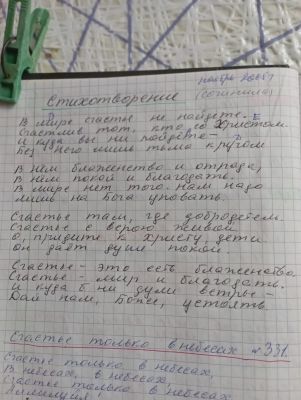 ноябрь 2005 г
Стихотворение (сочинила)
В мире счастье не найдете. –
Счастлив тот, кто со Христом
И куда вы ни пойдете –
Без Него лишь тьма кругом
В Нём блаженство и отрада,
В Нём покой и благодать.
В мире нет того. нам надо
лишь на Бога уповать.
Счастье там, где добродетель.
Счастье с верою живой
О, придите к Христу, дети
Он даёт душе покой
Счастье – это есть блаженство,
Счастье – мир и благодать.
И куда б ни дули ветры –
Дай нам, Боже, устоять
Счастье только в небесах № 331.
Счастье только в небесах,
В небесах, в небесах,
Счастье только в небесах
Аллилуия!